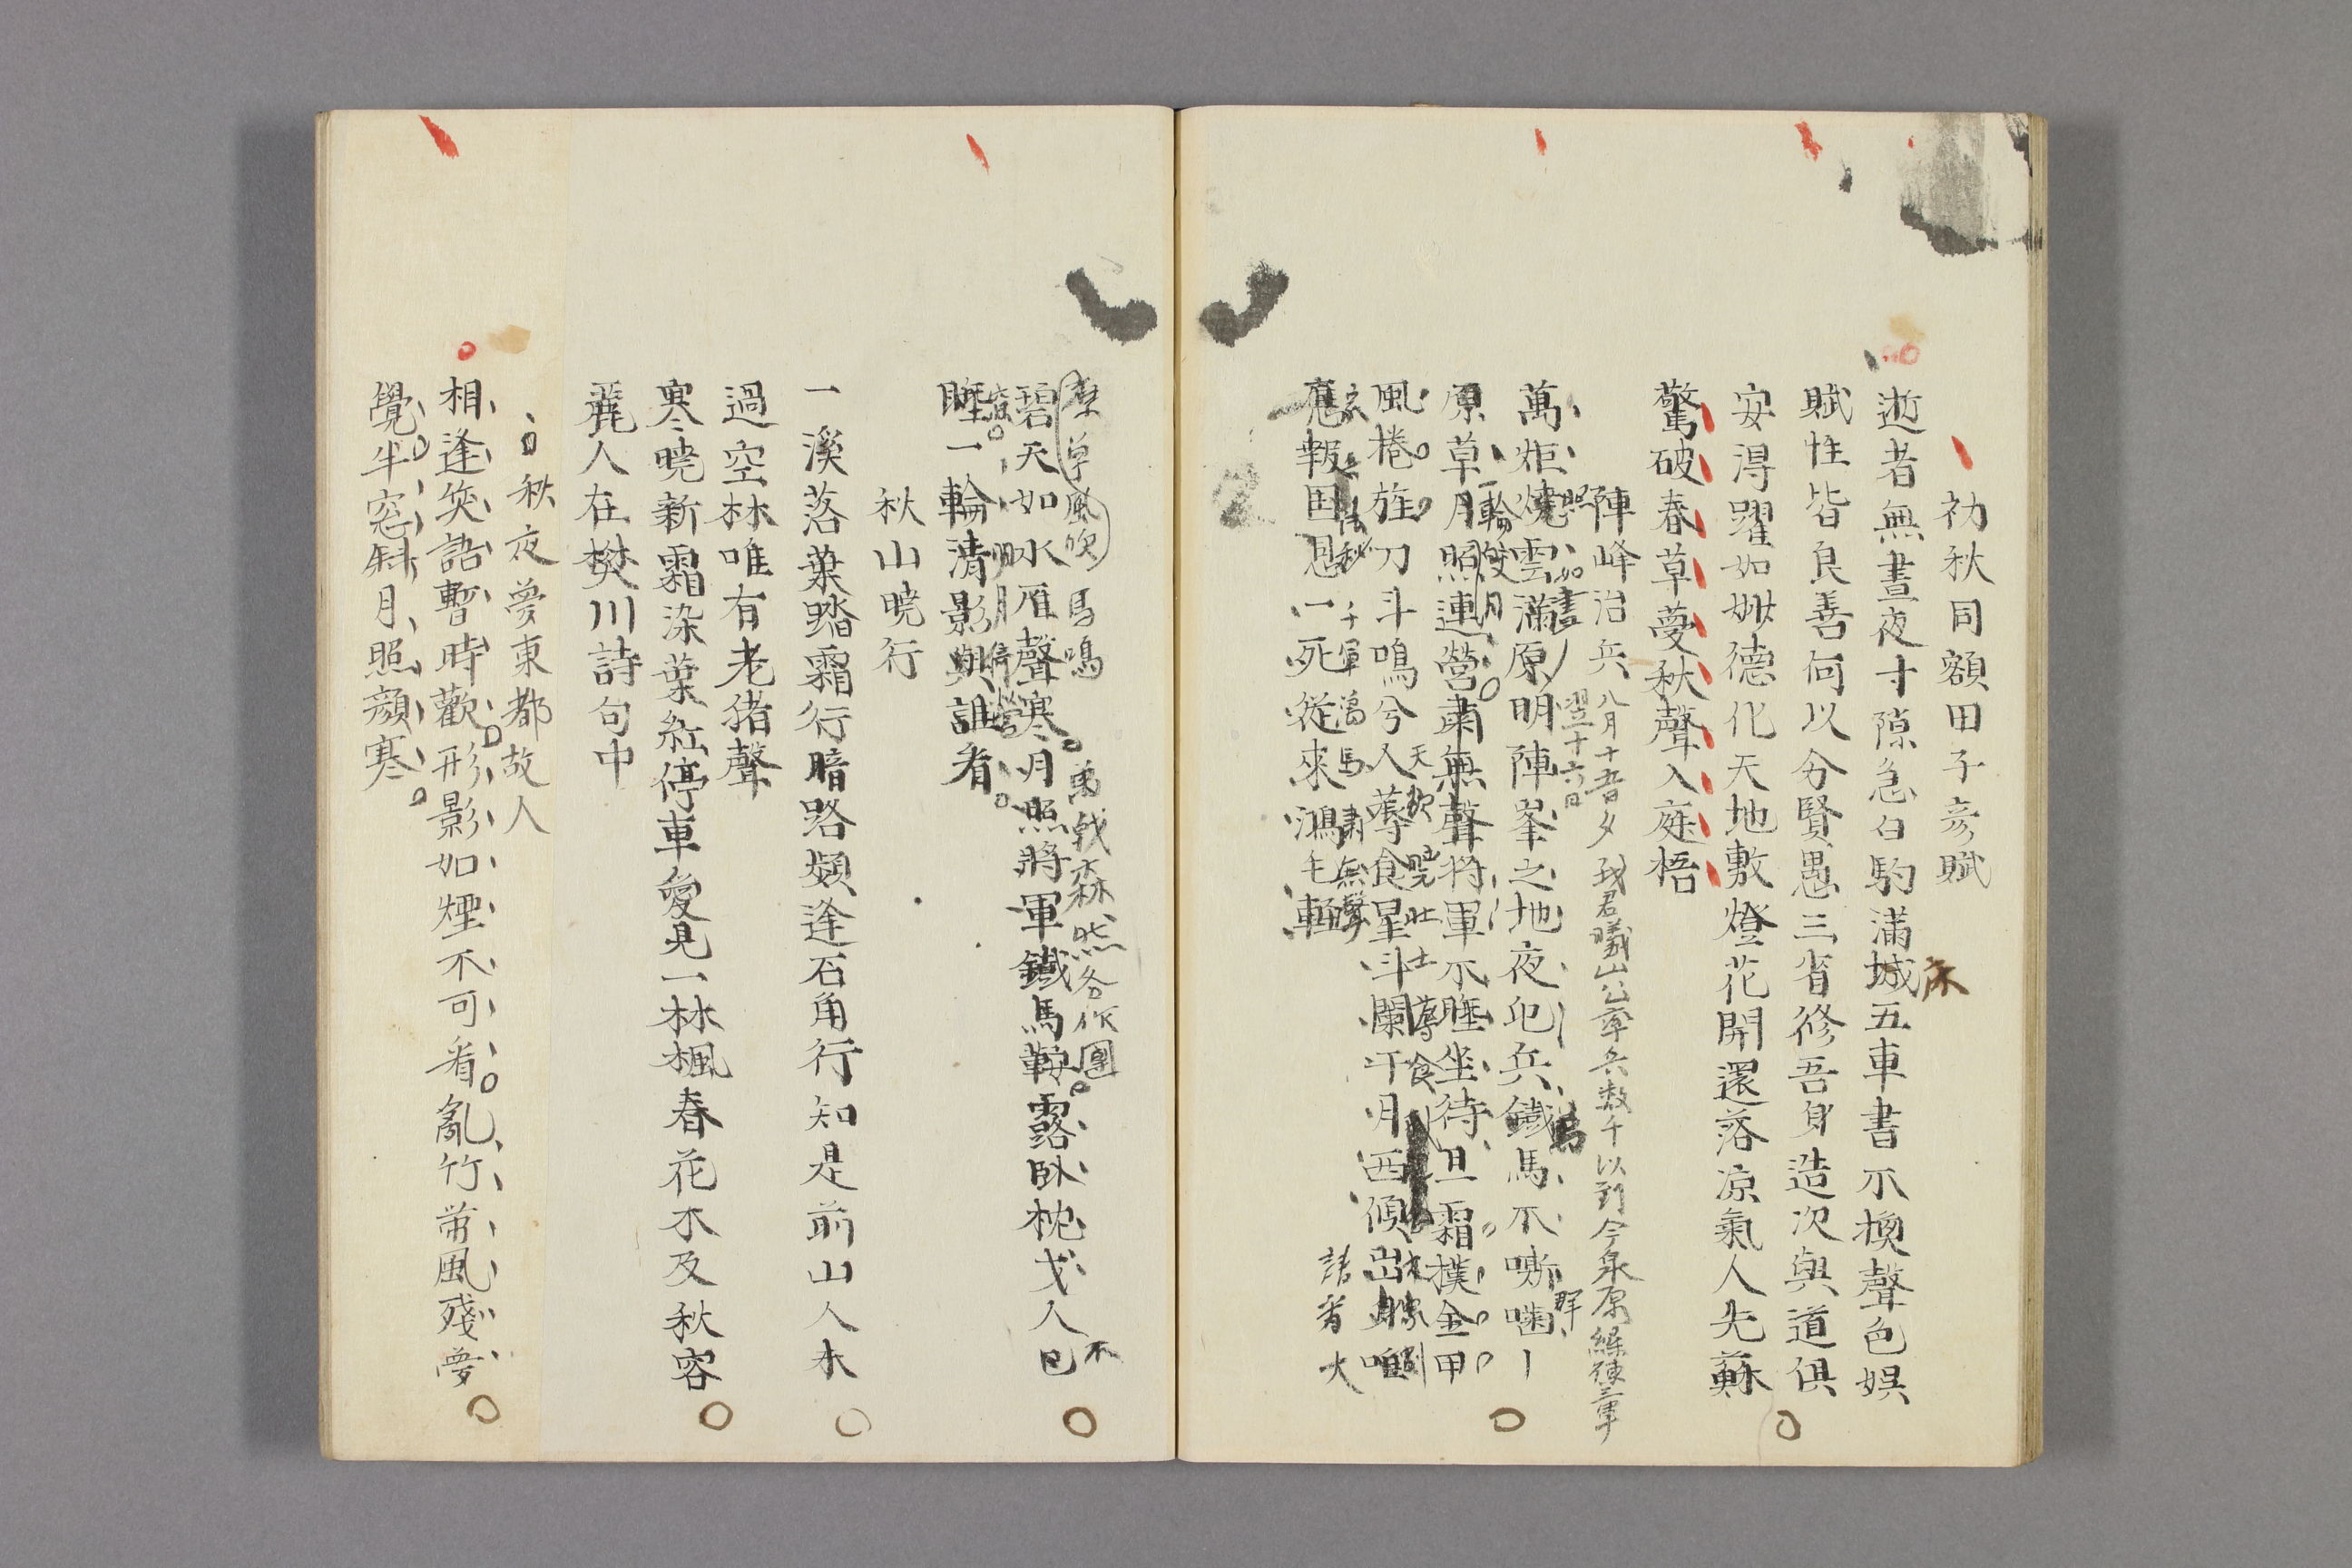 初秋同額田子彦賦
逝者無晝夜寸隙急白駒滿城五車書不換聲色娯
床
賦性皆良善何以分賢愚三省修吾身造次與道俱
安得躍如姆德化天地敷燈花開還落凉氣人先蘇
驚破春草夢秋聲入庭梧
陣峰治兵
八月十五日夕我君曦山公率兵数千以到今泉原繰練三軍
翌十六日
萬炬燒雲滿原明陣峯之地夜兵鐵馬不嘶
照如晝
原草月照連營肅無聲将軍不睡坐待旦霜撲金甲
一輪月
風捲旌刀斗鳴兮人蓐食星斗闌干月西傾出
天欲曉壯士蓐食
應報国恩一死從來鴻毛輕
馬肅無聲
諸者大
草風吹馬鳴
碧天如水雁聲寒月照將軍鐵馬鞍露臥枕戈人已
森然各作團
不
睡一輪淸影與誰看
明月
秋山曉行
一溪落葉踏霜行暗路頻逢石角行知是前山人未
過空林唯有老猪聲
寒曉新霜染葉紅停車愛見一林楓春花不及秋容
麗人在樊川詩句中
秋夜夢東都故人
相逢笑語暫時歡形影如煙不可看亂竹帶風殘夢
覺半窓斜月照顔寒